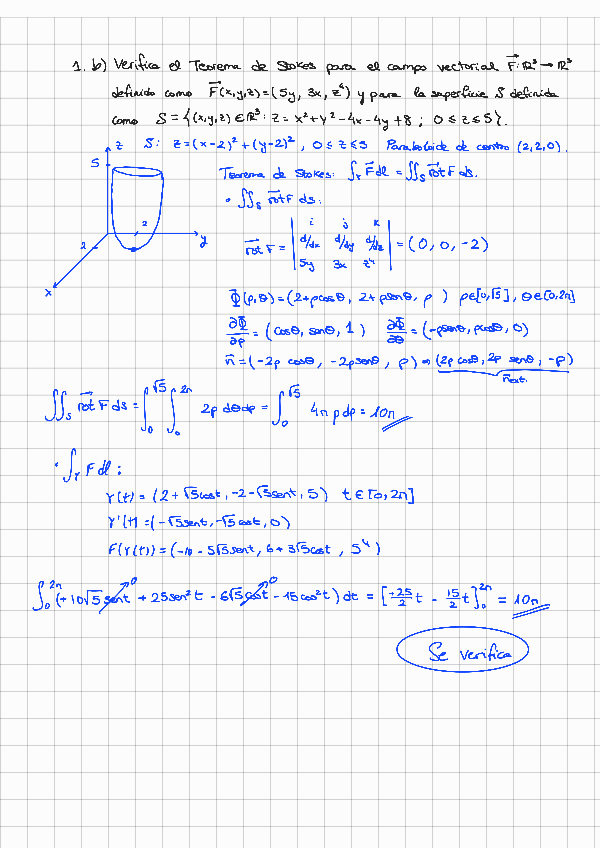 1. b) Verifica el Teorema de Stokes para el campo vectorial F⃗: ℝ³ → ℝ³
definido como F⃗(x,y,z) = (5y, 3x, z⁴) y para la superficie S definida
como S = {(x,y,z) ∈ ℝ³ : z = x² + y² - 4x - 4y + 8 ; 0 ≤ z ≤ 5}.
S: z = (x-2)² + (y-2)² , 0 ≤ z ≤ 5 Paraboloide de centro (2,2,0).
z
5
2
2
y
x
Teorema de Stokes: ∫_γ F⃗ dl = ∬_S rot⃗ F ds.
• ∬_S rot⃗ F ds:
rot⃗ F = | i j k ; d/dx d/dy d/dz ; 5y 3x z⁴ | = (0, 0, -2)
Φ⃗(ρ,θ) = (2+ρcosθ, 2+ρsenθ, ρ ) ρ∈[0,√5], θ∈[0,2π]
∂Φ⃗/∂ρ = (cosθ, senθ, 1 ) ∂Φ⃗/∂θ = (-ρsenθ, ρcosθ, 0)
n⃗ = (-2ρ cosθ, -2ρsenθ, ρ) ⇒ (2ρ cosθ, 2ρ senθ, -ρ)
n⃗ext.
∬_S rot⃗ F ds = ∫₀^√5 ∫₀^2π 2ρ dθdρ = ∫₀^√5 4π ρ dρ = 10π
• ∫_γ F dl :
γ(t) = (2 + √5cost, -2-√5sent, 5) t ∈ [0, 2π]
γ'(t) = (-√5sent, -√5 cost, 0)
F(γ(t)) = (-10 - 5√5sent, 6+3√5cost, 5⁴)
∫₀^2π (+10√5 sent + 25sen²t - 6√5 cost - 15cos²t) dt = [+25/2 t - 15/2 t]₀^2π = 10π
0
0
Se verifica